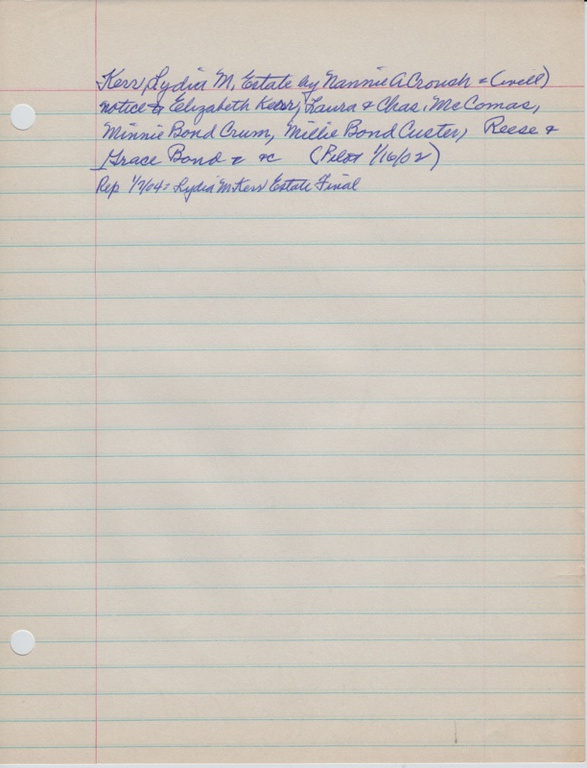 Kerr, Lydia M, Estate by Nannie A Crouch & (will)
notice to Elizabeth Kerr, Laura & Chas. McComas,
Minnie Bond Crum, Millie Bond Custer, Reese &
Grace Bond & &c (Pilot 1/16/02)
Rep 1/7/04: Lydia M Kerr Estate Final